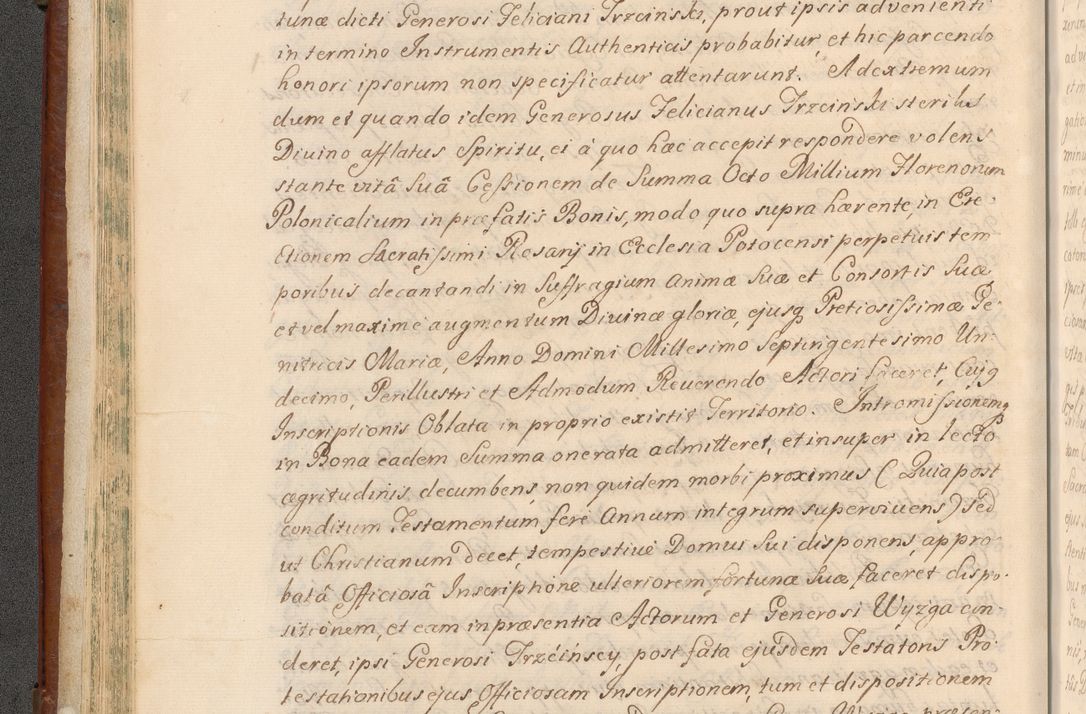 tunæ dicti Generosi Feliciani Trzcinski, prout ipsis advenienti
in termino Instrumentis Authenticis probabitur, et hic parcendo
honori ipsorum non specificatur attentarunt. Ad extremum
dum et quando idem Generosus Felicianus Trzcinski sterilis
Divino afflatus Spiritu, ei à quo hæc accepit respondere volens
stante vitâ Suâ Cessionem de Summa Octo Millium Florenorum
Polonicalium in præfatis Bonis, modo quo supra hærente, in Ere-
ctionem Sacratissimi Rosarij in Ecclesia Potocensi perpetuis tem
poribus decantandi in Suffragium Animæ Suæ et Consortis Suæ
et vel maximè augmentum Divinæ gloriæ, ejusq Pretiosissimæ Ge-
nitricis Mariæ, Anno Domini Millesimo Septingentesimo Un-
decimo, Perillustri et Admodum Reverendo Actori faceret, Cujq
Inscriptionis Oblata in proprio existit Territorio. Intromissionemq
in Bona eadem Summa onerata admitteret, et insuper in lecto
ægritudinis decumbens, non quidem morbi proximus (Quia post
conditum Testamentum ferè Annum integrum supervivens) sed
ut Christianum decet, tempestivè Domus Sui disponens, appro-
batâ Officiosâ Inscriptione ulteriorem fortunæ Suæ, faceret dispo-
sitionem, et eam in præsentia Actorum et Generosi Wyzga con-
deret, ipsi Generosi Trzcińscy, post fata ejusdem Testatoris Pro
testationibus ejus Officiosam Inscriptionem, tum et dispositionem